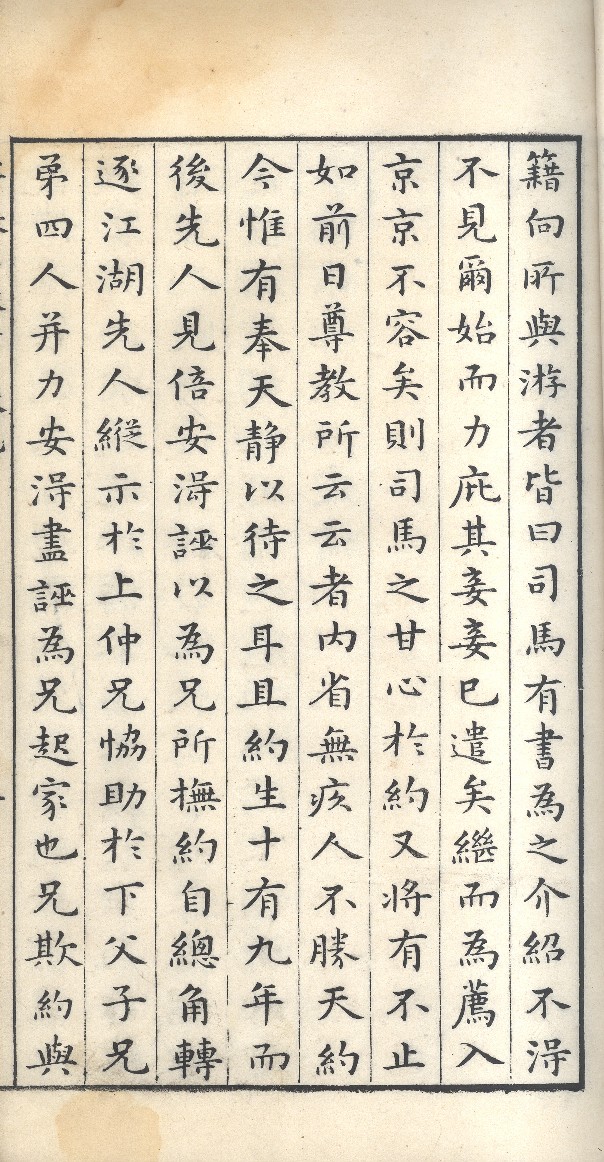 籍向所與游者皆曰司馬有書為之介紹不淂
不見爾始而力庇其妾妾已遣矣繼而為薦入
京京不容矣則司馬之甘心於約又將有不止
如前日尊教所云云者内省無疚人不勝天約
今惟有奉天静以待之耳且約生十有九年而
後先人見倍安淂誣以為兄所撫約自總角轉
逐江湖先人縱示於上仲兄恊助於下父子兄
弟四人并力安淂盡誣為兄起家也兄欺約與